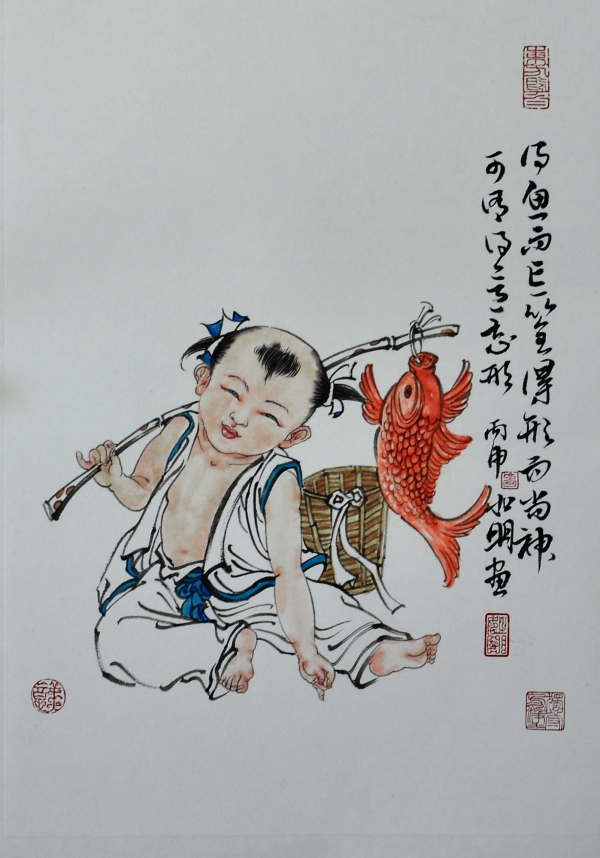 得鱼而忘筌得形而尚神
可谓得意忘形 丙申 如明画